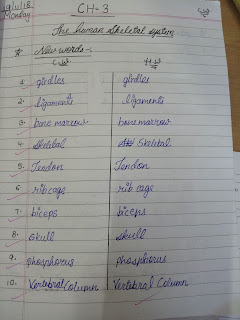 Monday
CH-3
The human skeletal system
New words-:
C.W H.W
1. girdles girdles
2. ligaments ligaments
3. bone marrow bone marrow
4. Skeletal Skeletal
5. Tendon Tendon
6. rib cage rib cage
7. biceps biceps
8. Skull Skull
9. phosphorus phosphorus
10. Vertebral Column Vertebral Column